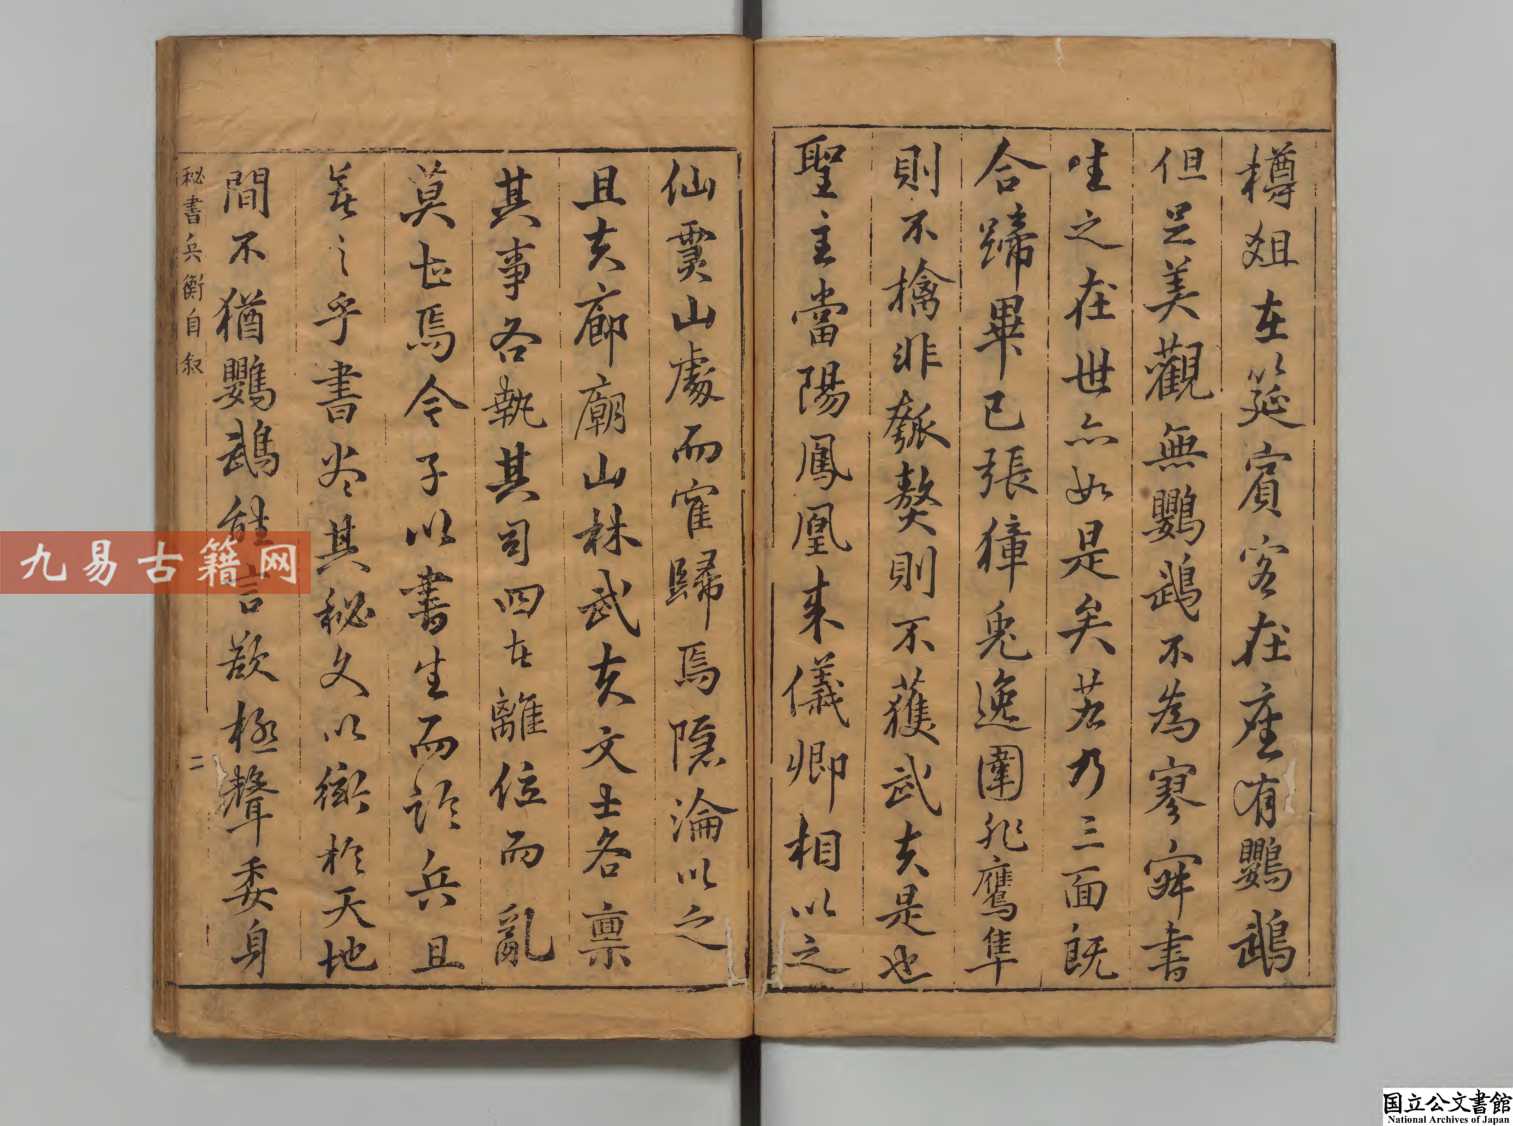 樽俎在筵賓客在座有鸚鵡
但足美觀無鸚鵡不為寥寂書
生之在世亦如是矣若乃三面既
合蹄畢已張獐兎逸圍非鷹隼
則不擒非瓠獒則不獲武夫是也
聖主當陽鳳凰來儀卿相以之
仙靈山處而窟歸焉隠淪以之
且夫廊廟山林武夫文士各禀
其事各執其司四在離位而亂
莫甚焉今子以書生而訟兵且
筆之乎書必其秘文以衒於天地
間不猶鸚鵡能言欲極聲委身
秘書兵衡自叙
二
九易古籍网
国立公文書館
National Archives of Japan